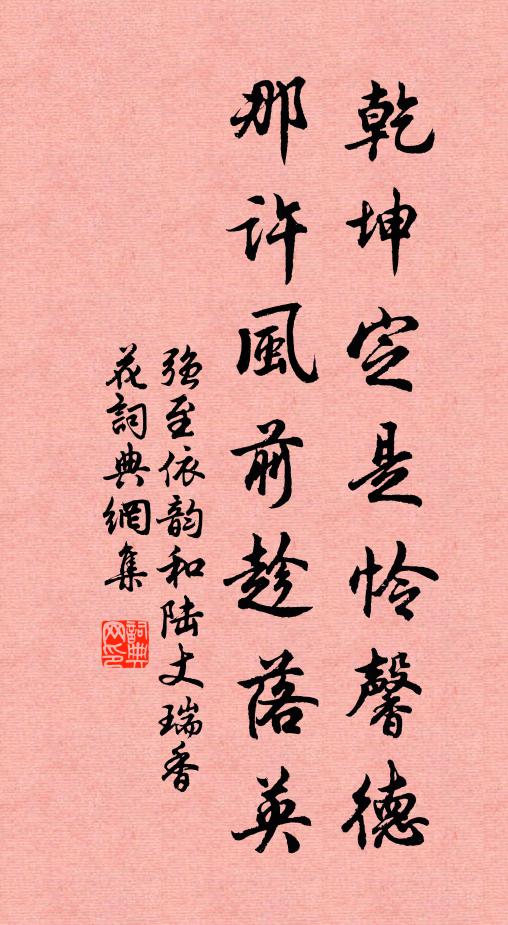 乾坤定是怜馨德
那许風前趁落英
强至依韵和陆丈瑞香
花詞典網集
詞典网印